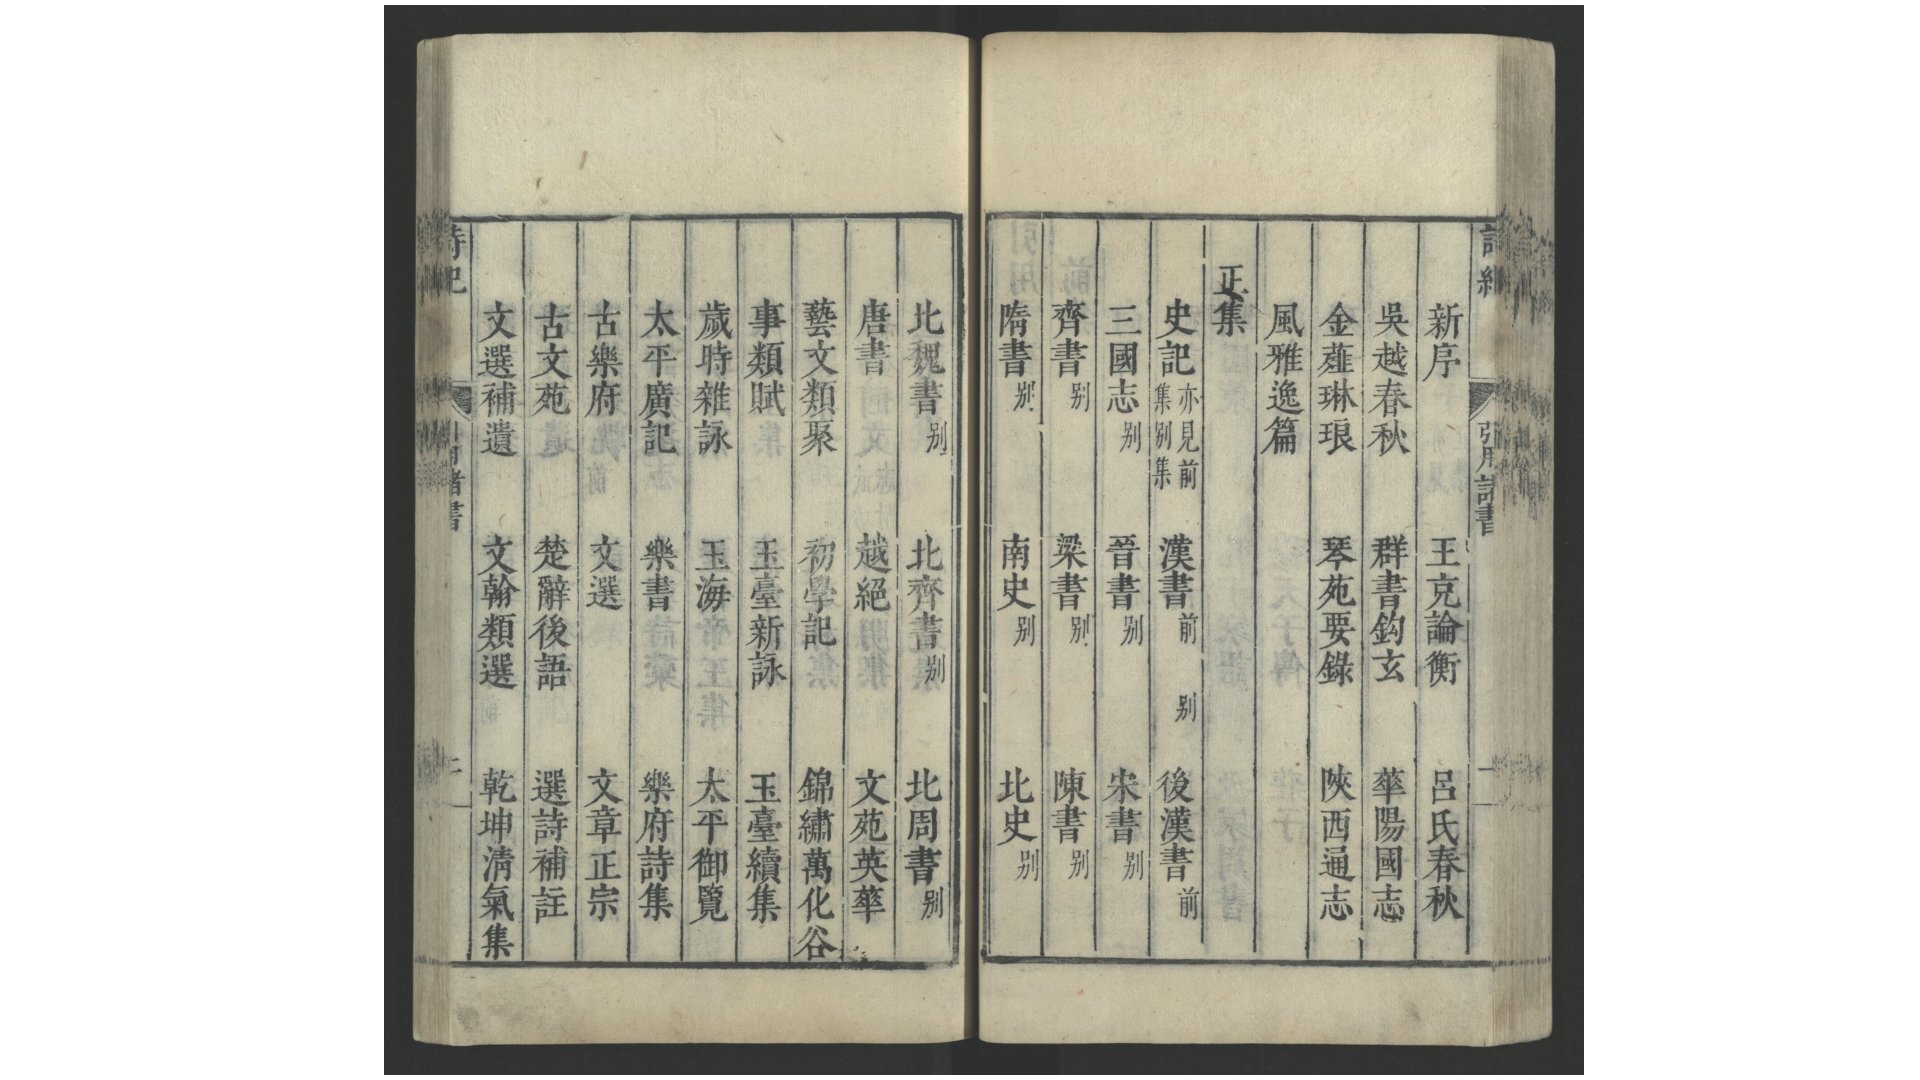 新序 王克論衡 呂氏春秋
吳越春秋 群書鈎玄 華陽國志
金薤琳琅 琴苑要錄 陝西通志
風雅逸篇
正集
史記 亦見前集别集 漢書 前 别 後漢書 前
三國志 别 晉書 别 宋書 别
齊書 别 梁書 别 陳書 别
隋書 别 南史 别 北史 别
北魏書 别 北齊書 别 北周書 别
唐書 越絕 文苑英華
藝文類聚 初學記 錦繡萬化谷
事類賦 玉臺新詠 玉臺續集
歲時雜詠 玉海 太平御覽
太平廣記 樂書 樂府詩集
古樂府 文選 文章正宗
古文苑 楚辭後語 選詩補註
文選補遺 文翰類選 乾坤清氣集